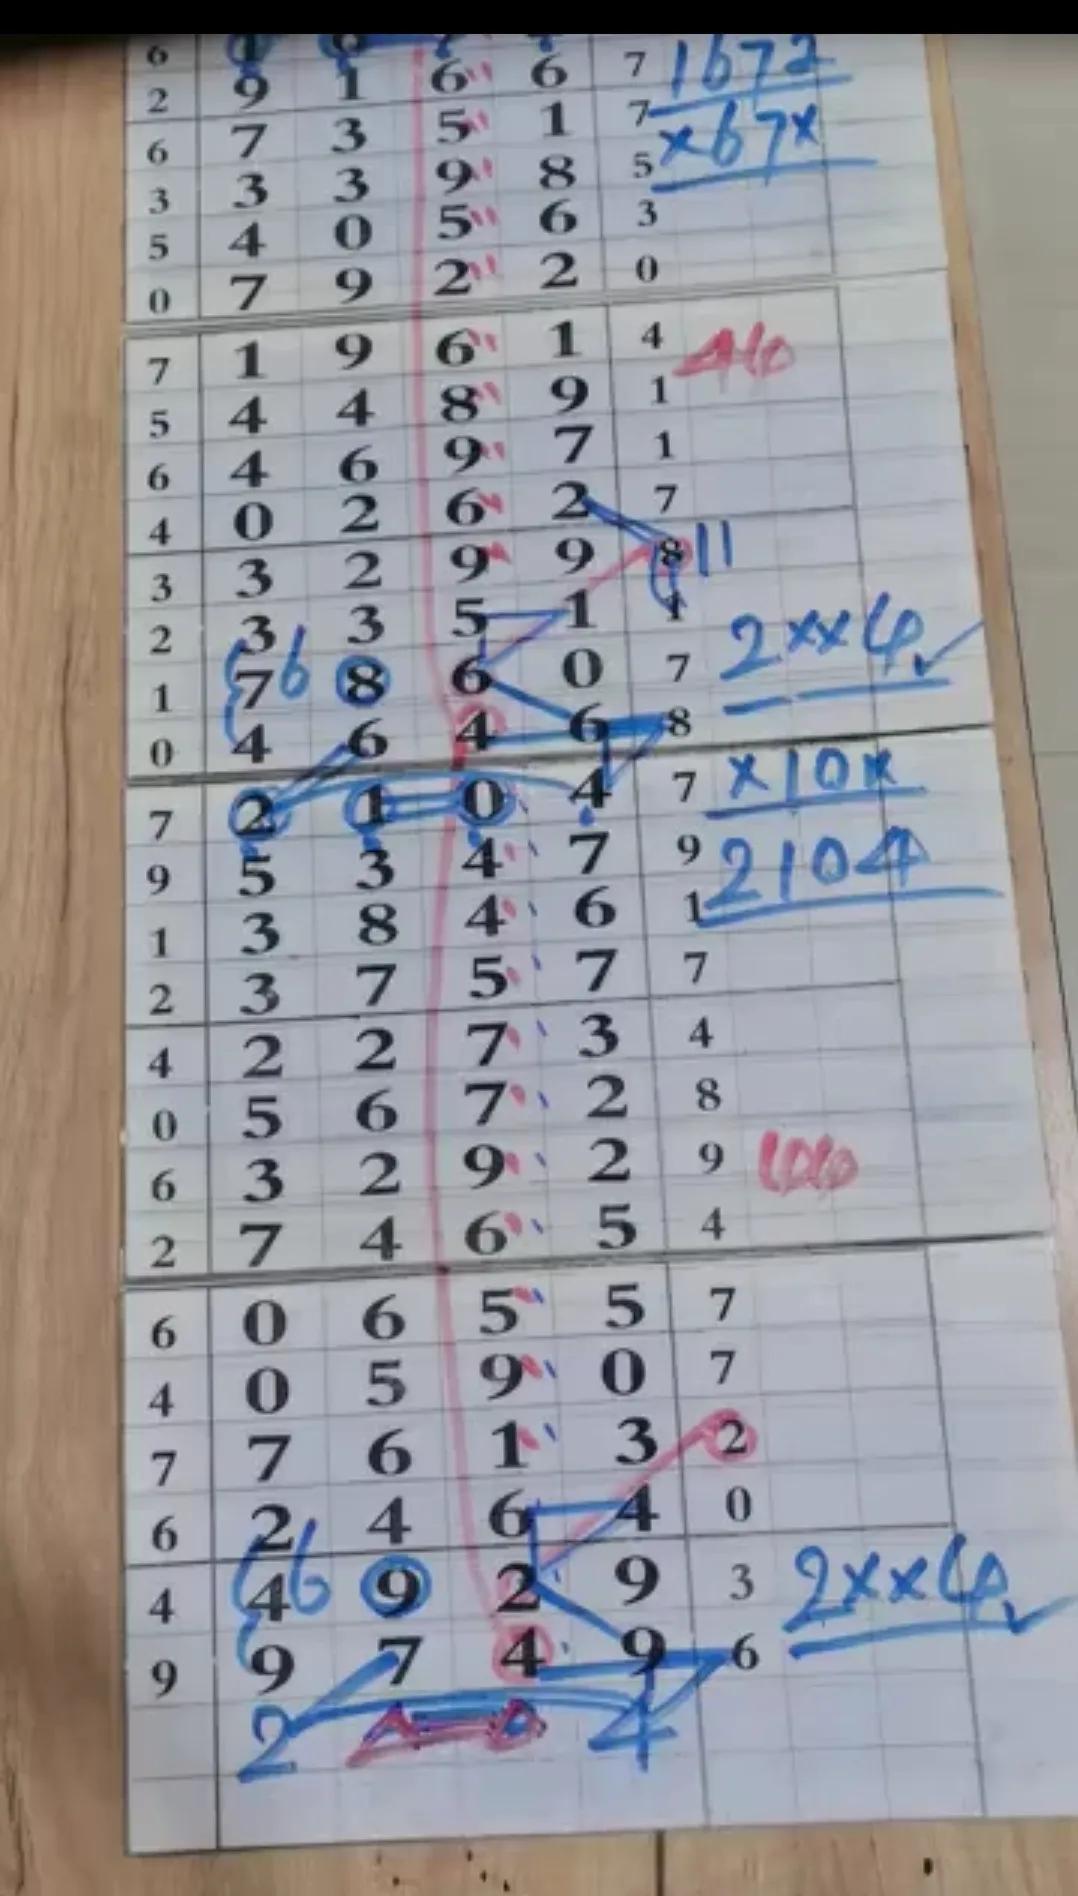 6
2 9 1 6 6 7 1672
6 7 3 5 1 7 x67x
3 3 3 9 8 5
5 4 0 5 6 3
0 7 9 2 2 0
7 1 9 6 1 4
5 4 4 8 9 1
6 4 6 9 7 1
4 0 2 6 2 7
3 3 2 9 9 8 11
2 3 3 5 1 1
1 7 6 8 6 0 7 2xx4
0 4 6 4 6 8
7 2 1 0 4 7 x10x
9 5 3 4 7 9 2104
1 3 8 4 6 1
2 3 7 5 7 7
4 2 2 7 3 4
0 5 6 7 2 8
6 3 2 9 2 9
2 7 4 6 5 4
6 0 6 5 5 7
4 0 5 9 0 7
7 7 6 1 3 2
6 2 4 6 4 0
4 4 6 9 2 9 3 2xx4
9 9 7 4 9 6
2 4